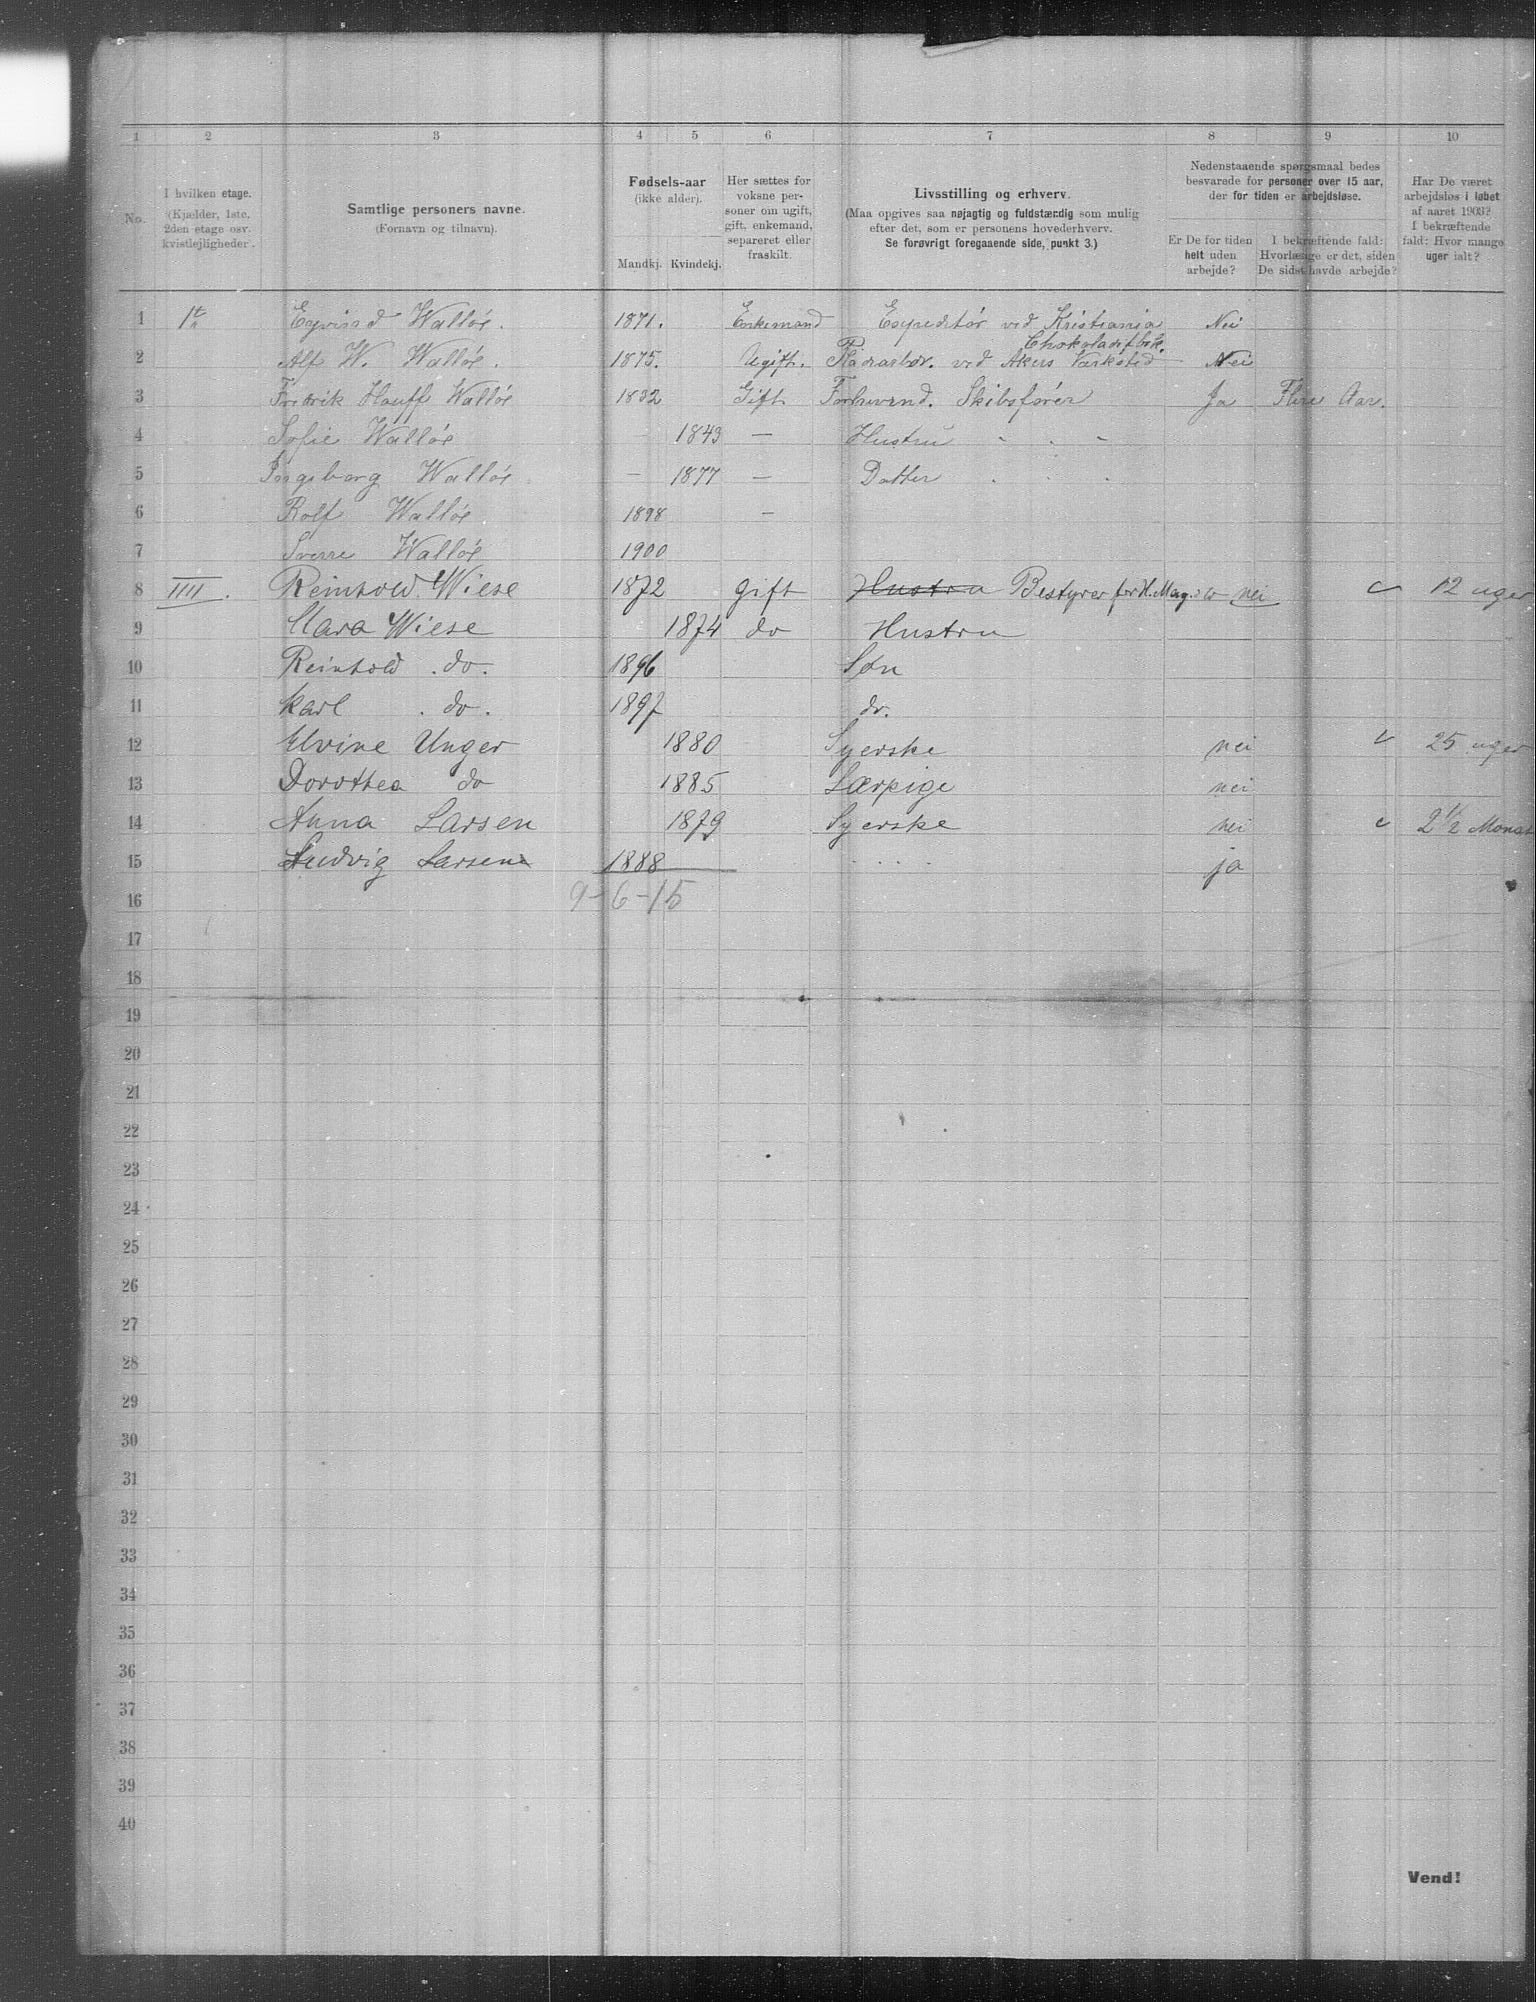 1 2 3 4 5 6 7 8 9 10
No.
I hvilken etage.
(Kjælder, 1ste,
2den etage osv.
kvistlejligheder.
Samtlige personers navne.
(Fornavn og tilnavn).
Fødsels-aar
(ikke alder).
Mandkj. Kvindekj.
Her sættes for
voksne per-
soner om ugift,
gift, enkemand,
separeret eller
fraskilt.
Livsstilling og erhverv.
(Maa opgives saa nøjagtig og fuldstændig som mulig
efter det, som er personens hovederhverv.
Se forøvrigt foregaaende side, punkt 3.)
Nedenstaaende spørgsmaal bedes
besvarede for personer over 15 aar,
der for tiden er arbejdsløse.
Er De for tiden
helt uden
arbejde?
I bekræftende fald:
Hvorlænge er det, siden
De sidst havde arbejde?
Har De været
arbejdsløs i løbet
af aaret 1903?
I bekræftende
fald: Hvor mange
uger ialt?
1 1ste Eyvind Walløe. 1871. Enkemand Expeditør ved Kristiania Nei
Chokoladefbrk.
2 Alf W. Walløe. 1875. Ugift. Pladearbdr. ved Akers Værksted Nei
3 Fredrik Hauff Walløe 1832 Gift Forhenvnd. Skibsfører Ja Flere Aar.
4 Sofie Walløe - 1843 - Hustru - - -
5 Ingeborg Walløe - 1877 - Datter . . .
6 Rolf Walløe 1898 -
7 Sverre Walløe 1900
8 IIII. Reinhold Wiese 1872 gift Hustru Bestyrer for H. Mag. nei 12 uger
9 Clara Wiese 1874 do Hustru
10 Reinhold do. 1896 Søn
11 Karl do. 1897 do.
12 Elvine Unger 1880 Syerske nei 25 uger
13 Dorothea do 1885 Lærpige nei
14 Anna Larsen 1879 Syerske nei 2 1/2 Monat
15 Ludvig Larsen 1888 . . . . ja
16 9-6-15
17
18
19
20
21
22
23
24
25
26
27
28
29
30
31
32
33
34
35
36
37
38
39
40
Vend!